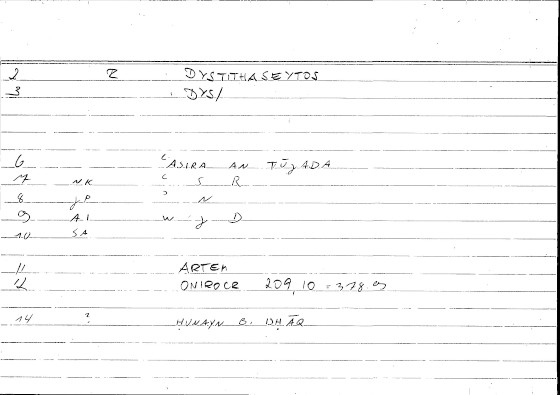 2 Z DYSTITHASEYTOS
3 DYS/
6 ʿASIRA AN TŪJADA
7 NK ʿ S R
8 JP ʾ N
9 AI W J D
10 SA
11 ARTEM
12 ONIROCR 209,10 = 378,9
14 ? ḤUNAYN B. ISḤĀQ